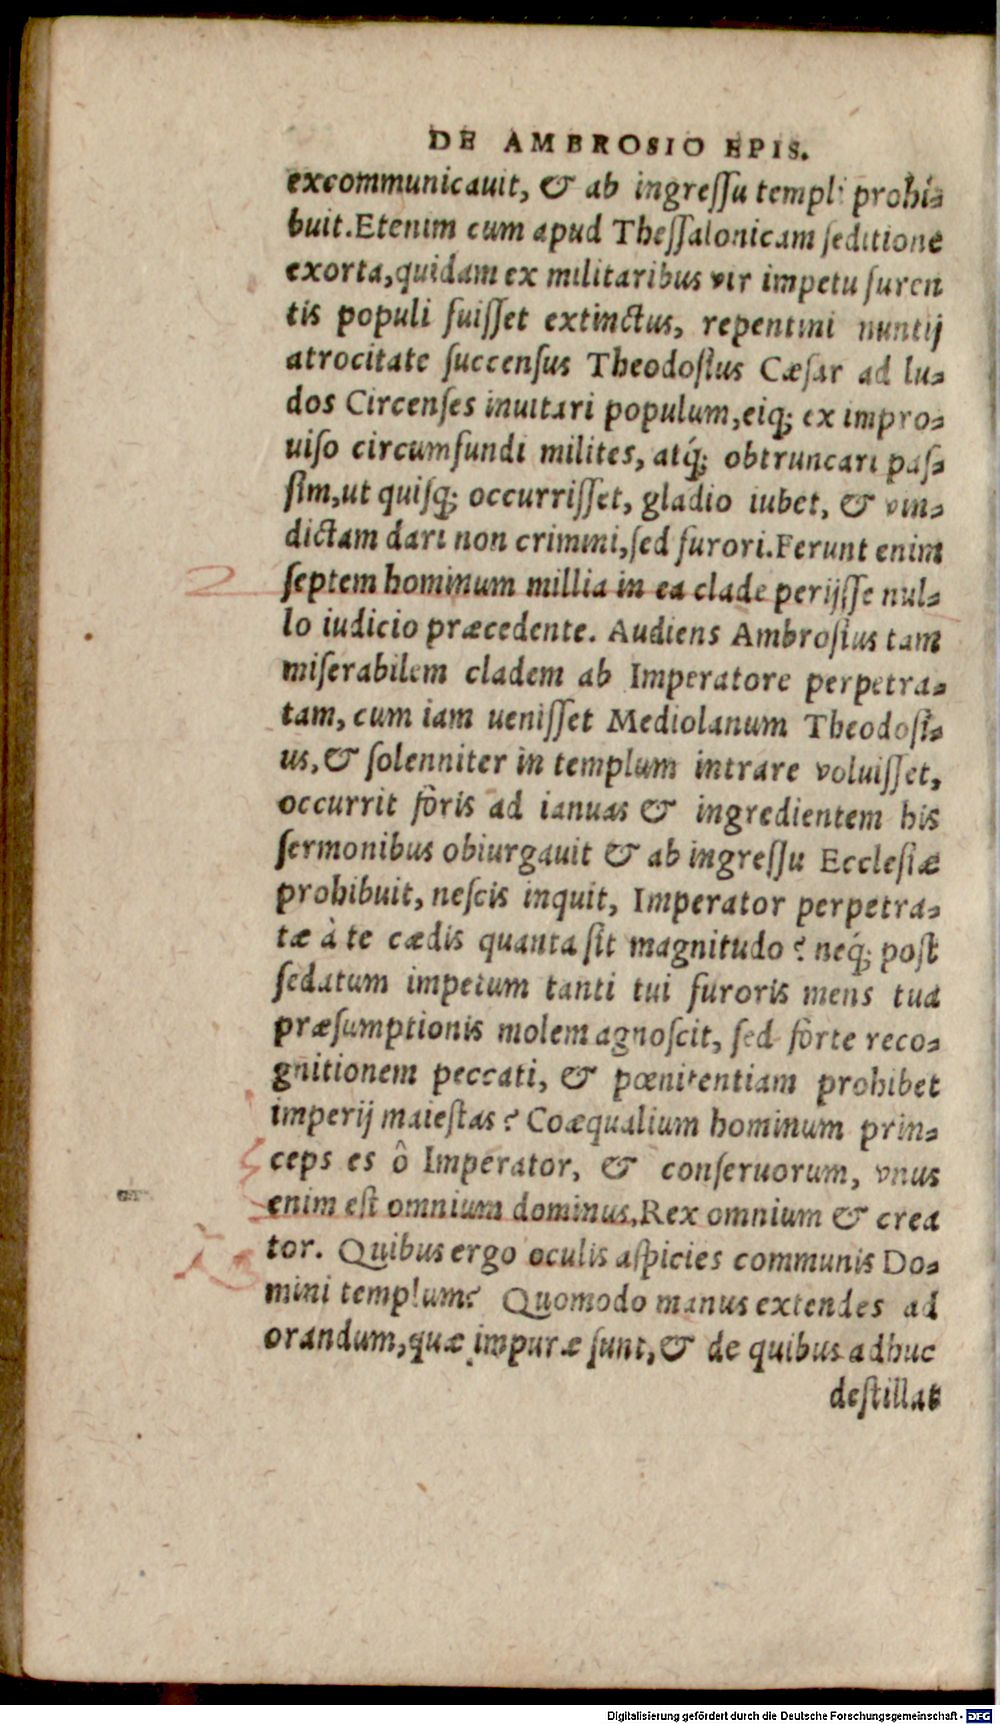 DE AMBROSIO EPIS.
excommunicauit, & ab ingreſſu templi prohi-
buit. Etenim cum apud Theſſalonicam ſeditione
exorta, quidam ex militaribus vir impetu furen
tis populi fuiſſet extinctus, repentini nuntij
atrocitate ſuccenſus Theodoſius Cæſar ad lu-
dos Circenſes inuitari populum, eiq́; ex impro-
uiſo circumfundi milites, atq́; obtruncari paſ-
ſim, ut quiſq; occurriſſet, gladio iubet, & vin-
dictam dari non crimini, ſed furori. Ferunt enim
ſeptem hominum millia in ea clade perijſſe nul-
lo iudicio præcedente. Audiens Ambroſius tam
miſerabilem cladem ab Imperatore perpetra-
tam, cum iam ueniſſet Mediolanum Theodoſi-
us, & ſolenniter in templum intrare voluiſſet,
occurrit fôris ad ianuas & ingredientem his
ſermonibus obiurgauit & ab ingreſſu Eccleſiæ
prohibuit, neſcis inquit, Imperator perpetra-
tæ à te cædis quanta ſit magnitudo? neq́; poſt
ſedatum impetum tanti tui furoris mens tua
præſumptionis molem agnoſcit, ſed fôrte reco-
gnitionem peccati, & pœnitentiam prohibet
imperij maieſtas? Coæqualium hominum prin-
ceps es ô Imperator, & conſeruorum, vnus
enim eſt omnium dominus, Rex omnium & crea
tor. Quibus ergo oculis aſpicies communis Do-
mini templum? Quomodo manus extendes ad
orandum, quæ impuræ ſunt, & de quibus adhuc
deſtillat
Digitalisierung gefördert durch die Deutsche Forschungsgemeinschaft - DFG